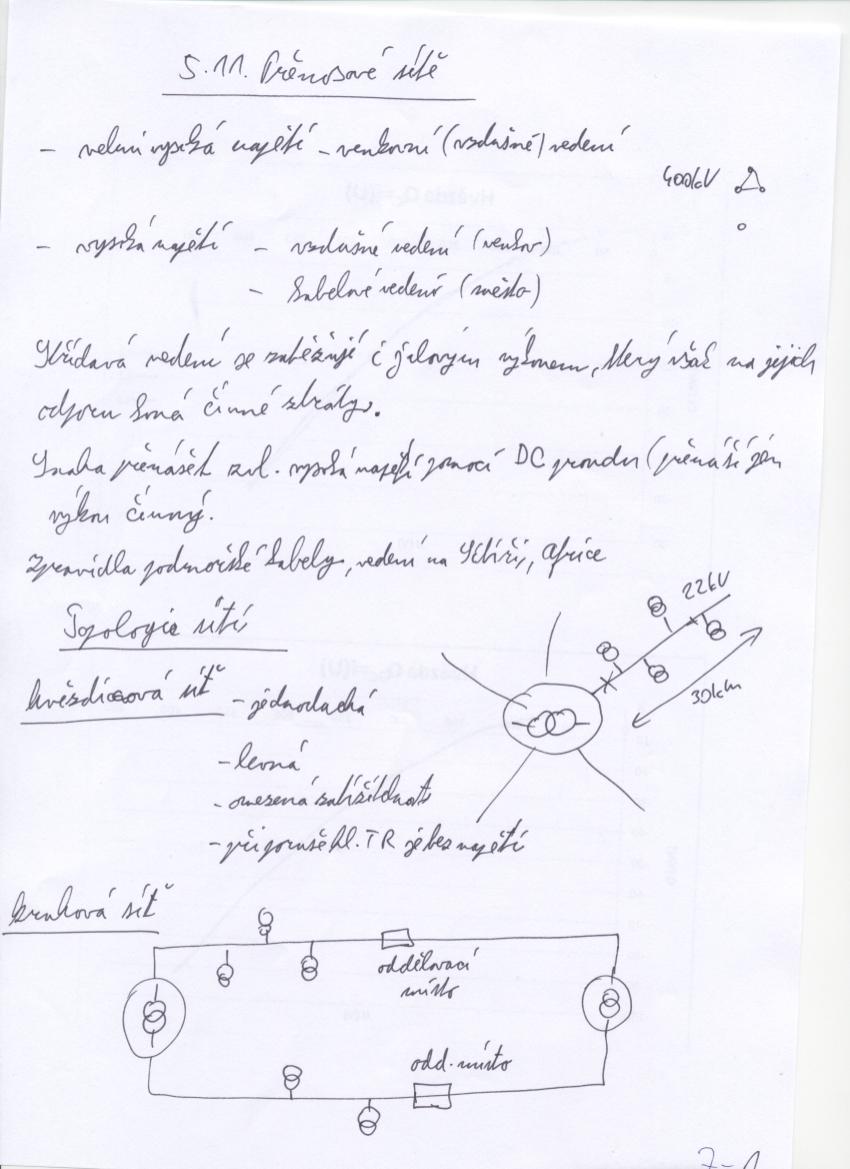 5.11. Přenosové sítě
- velmi vysoká napětí - venkovní (vzdušné) vedení
400kV
- vysoká napětí - vzdušné vedení (venkov)
- kabelové vedení (město)
Střídavá vedení se zatěžují i jalovým výkonem, který však na jejich
odporu koná činné ztráty.
Snaha přenášet zvl. vysoká napětí pomocí DC proudu (přenáší jen
výkon činný).
Zpravidla podmořské kabely, vedení na Sibiři, Africe
Topologie sítí
22kV
30km
hvězdicová síť - jednoduchá
- levná
- omezená zatížitelnost
- při poruše hl. TR je bez napětí
kruhová síť
oddělovací
místo
odd. místo
7-1